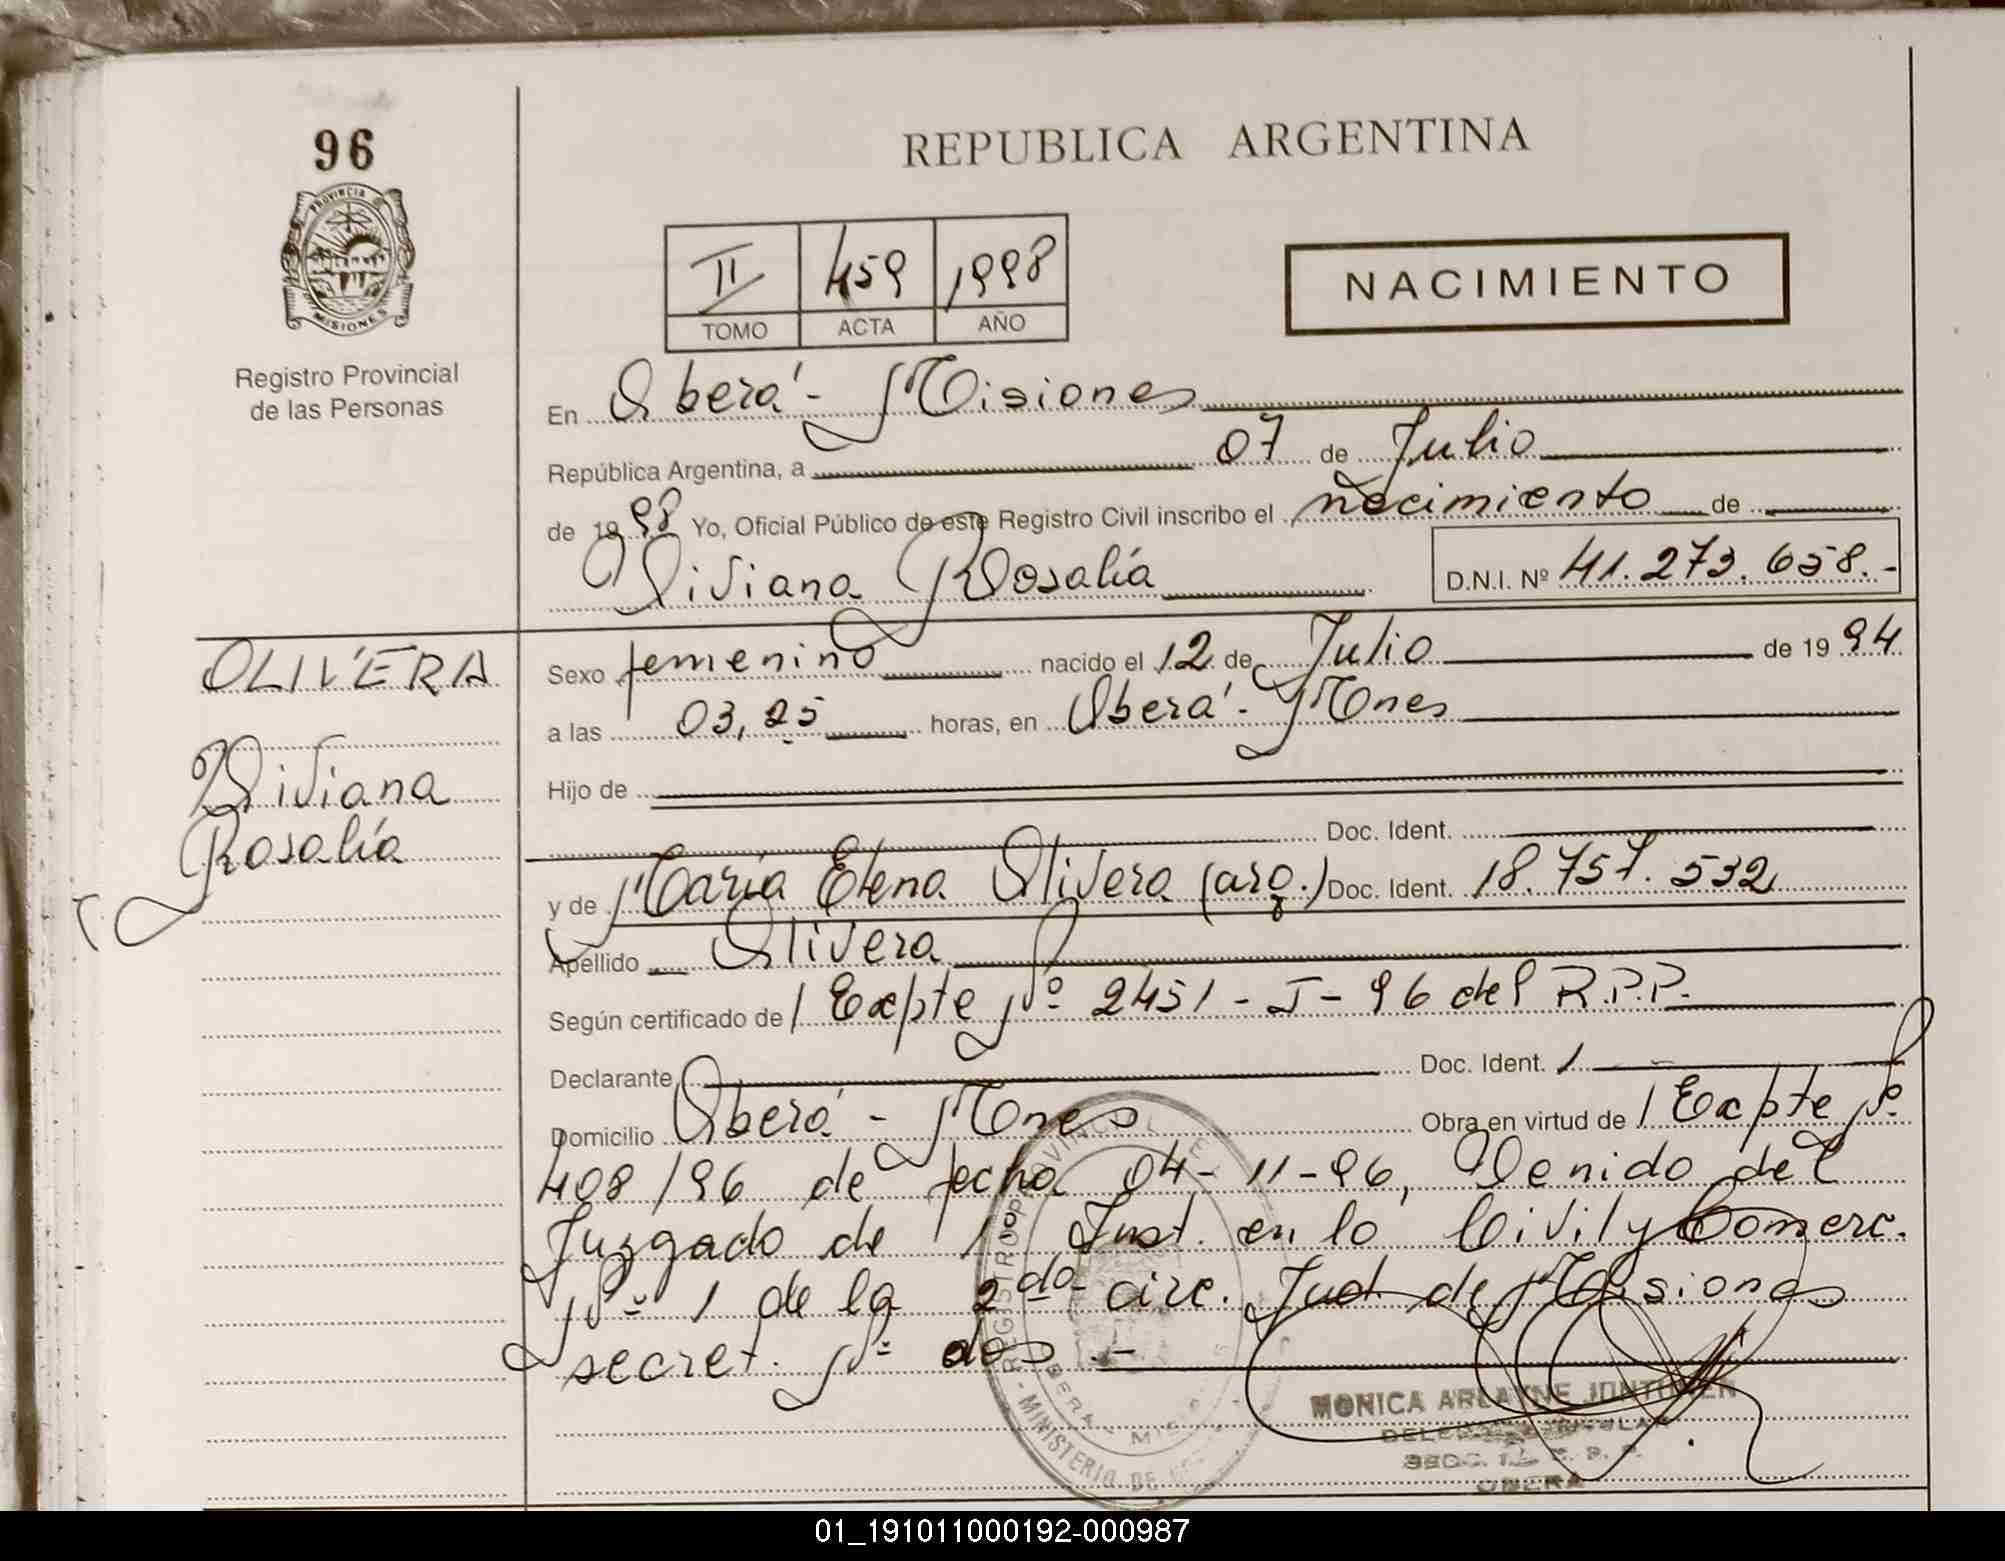 96
REPUBLICA ARGENTINA
PROVINCIA DE
MISIONES
Registro Provincial
de las Personas
II 459 1998
TOMO ACTA AÑO
NACIMIENTO
En Oberá - Misiones
República Argentina, a 07 de Julio
de 1998 Yo, Oficial Público de este Registro Civil inscribo el nacimiento de
Viviana Rosalía D.N.I. Nº 41.273.658.-
OLIVERA
Viviana
Rosalía
Sexo femenino nacido el 12 de Julio de 1994
a las 03,25 horas, en Oberá - Mnes
Hijo de
Doc. Ident.
y de María Elena Olivera (arg.) Doc. Ident. 18.757.532
Apellido Olivera
Según certificado de / Expte Nº 2451 - J - 96 del R.P.P.
Declarante Doc. Ident. /
Domicilio Oberá - Mnes Obra en virtud de / Expte Nº
408/96 de fecha 04-11-96, Venido del
Juzgado de 1º Inst. en lo Civil y Comerc.
Nº 1 de la 2da circ. Jud. de Misiones
secret. Nº dos.-
REGISTRO PROVINCIAL DE
MINISTERIO DE
MONICA ARLAYNE
OBERA
01_191011000192-000987